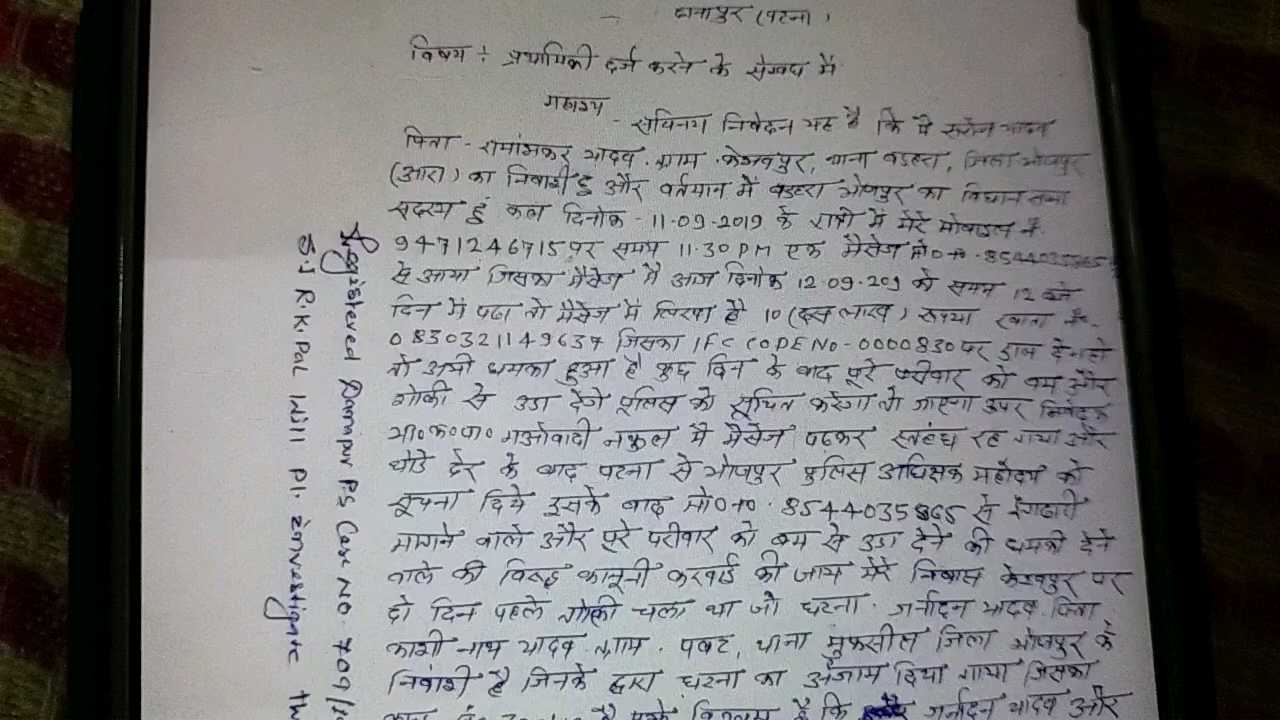 दानापुर (पटना)
विषय : प्राथमिकी दर्ज करने के संबंध में
महाशय
सविनय निवेदन यह है कि मैं सरोज यादव
पिता - रामाशंकर यादव ग्राम केशवपुर, थाना बड़हरा, जिला भोजपुर
(आरा) का निवासी हुं और वर्तमान में बड़हरा भोजपुर का विधान सभा
सदस्य हुं कल दिनांक - 11-09-2019 के रात्री में मेरे मोबाइल नं.
9471246715 पर समय 11.30 PM एक मैसेज मो० न० - 8544035865
से आया जिसका मैसेज मैं आज दिनांक 12.09.209 को समय 12 बजे
दिन में पढा तो मैसेज में लिखा है 10 (दस लाख) रूपया खाता नं.
083032114963 जिसका IFC CODE NO - 0000830 पर डाल दे नही
तो अभी धमका हुआ है कुछ दिन के बाद पूरे परीवार को बम और
गोली से उडा देंगे पुलिस को सूचित करेगा तो जाएगा उपर निवेदक
भा० क० पा० माओवादी नकुल मैं मैसेज पढकर स्तब्ध रह गाया और
थोडे देर के बाद पटना से भोजपुर पुलिस अधिक्षक महोदय को
सूचना दिये इसके बाद मो० न० . 8544035865 से रंगदारी
मांगने वाले और पूरे परीवार को बम से उडा देने की धमकी देने
वाले की विरूद्ध कानूनी करवाई की जाय मेरे निवास केशवपुर पर
दो दिन पहले गोली चला था जो घटना . जर्नादन यादव पिता
काशी नाथ यादव ग्राम . पवट, थाना मुफसील जिला भोजपुर के
निवाशी है जिनके द्वारा घटना का अंजाम दिया गाया जिसका
है कि जर्नादन यादव और
Registered Danapur PS Case No. 709/
S.I R.K. Pal Will Pl. investigate